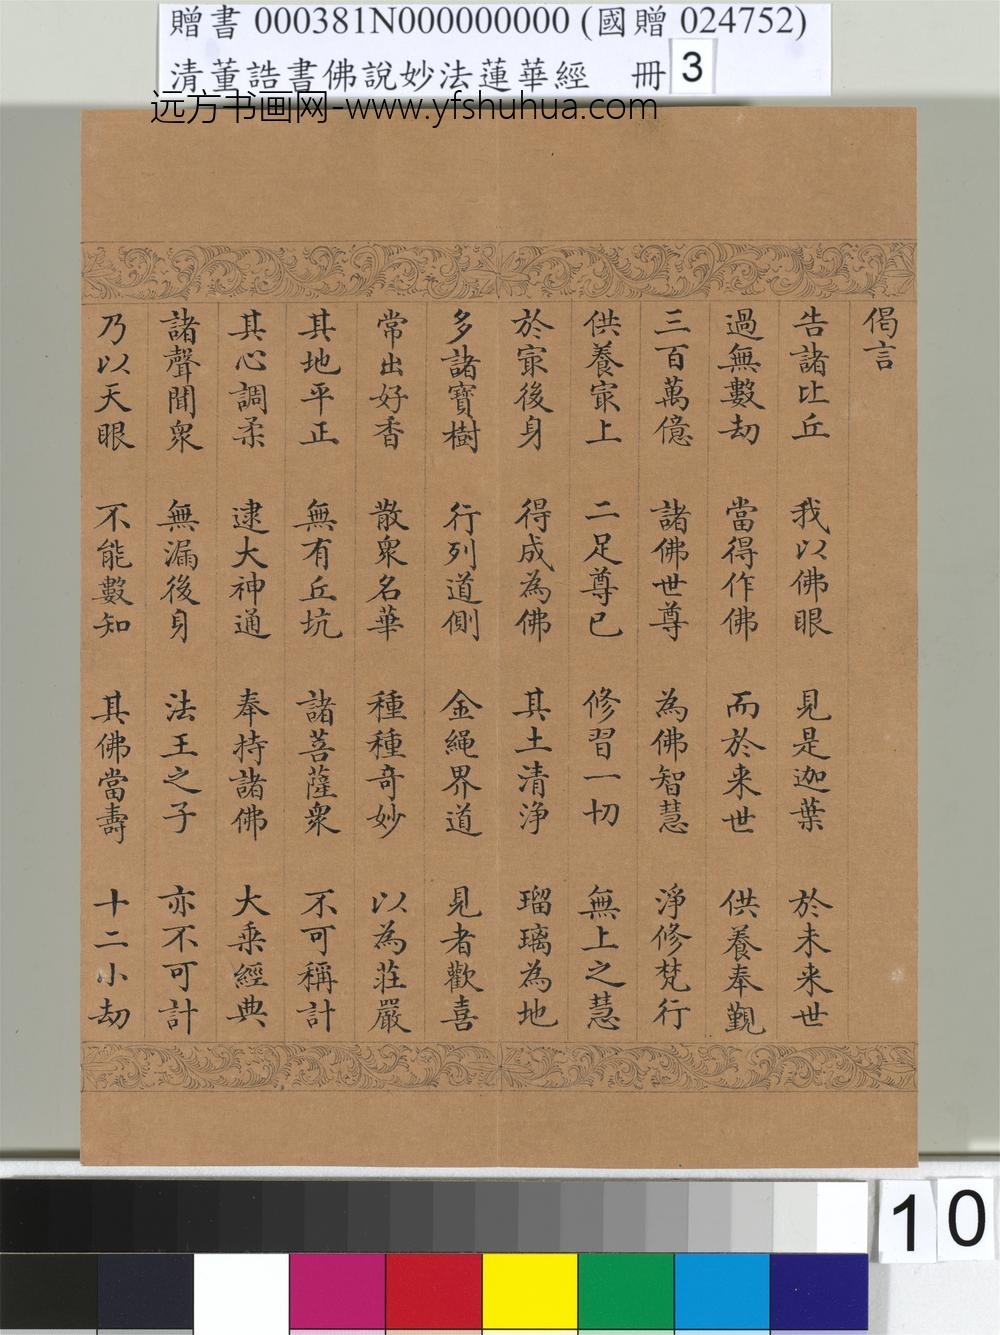 贈書 000381N000000000 (國贈 024752)
清董誥書佛說妙法蓮華經 冊 3
远方书画网-www.yfshuhua.com
偈言
告諸比丘 我以佛眼 見是迦葉 於未来世
過無數劫 當得作佛 而於来世 供養奉覲
三百萬億 諸佛世尊 為佛智慧 淨修梵行
供養冣上 二足尊已 修習一切 無上之慧
於冣後身 得成為佛 其土清淨 瑠璃為地
多諸寶樹 行列道側 金繩界道 見者歡喜
常出好香 散衆名華 種種奇妙 以為莊嚴
其地平正 無有丘坑 諸菩薩衆 不可稱計
其心調柔 逮大神通 奉持諸佛 大乗經典
諸聲聞衆 無漏後身 法王之子 亦不可計
乃以天眼 不能數知 其佛當壽 十二小劫
10